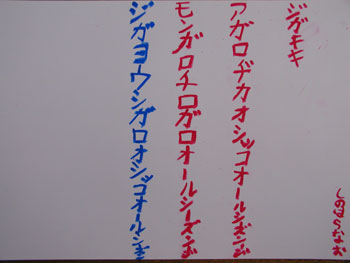 ジガキキ
アガロヂカオシッコオールシーズンジ
モンガロチロガロオールシーズンお
ジガヨウシガロオシッコオールシーズンジ
しのはらなお